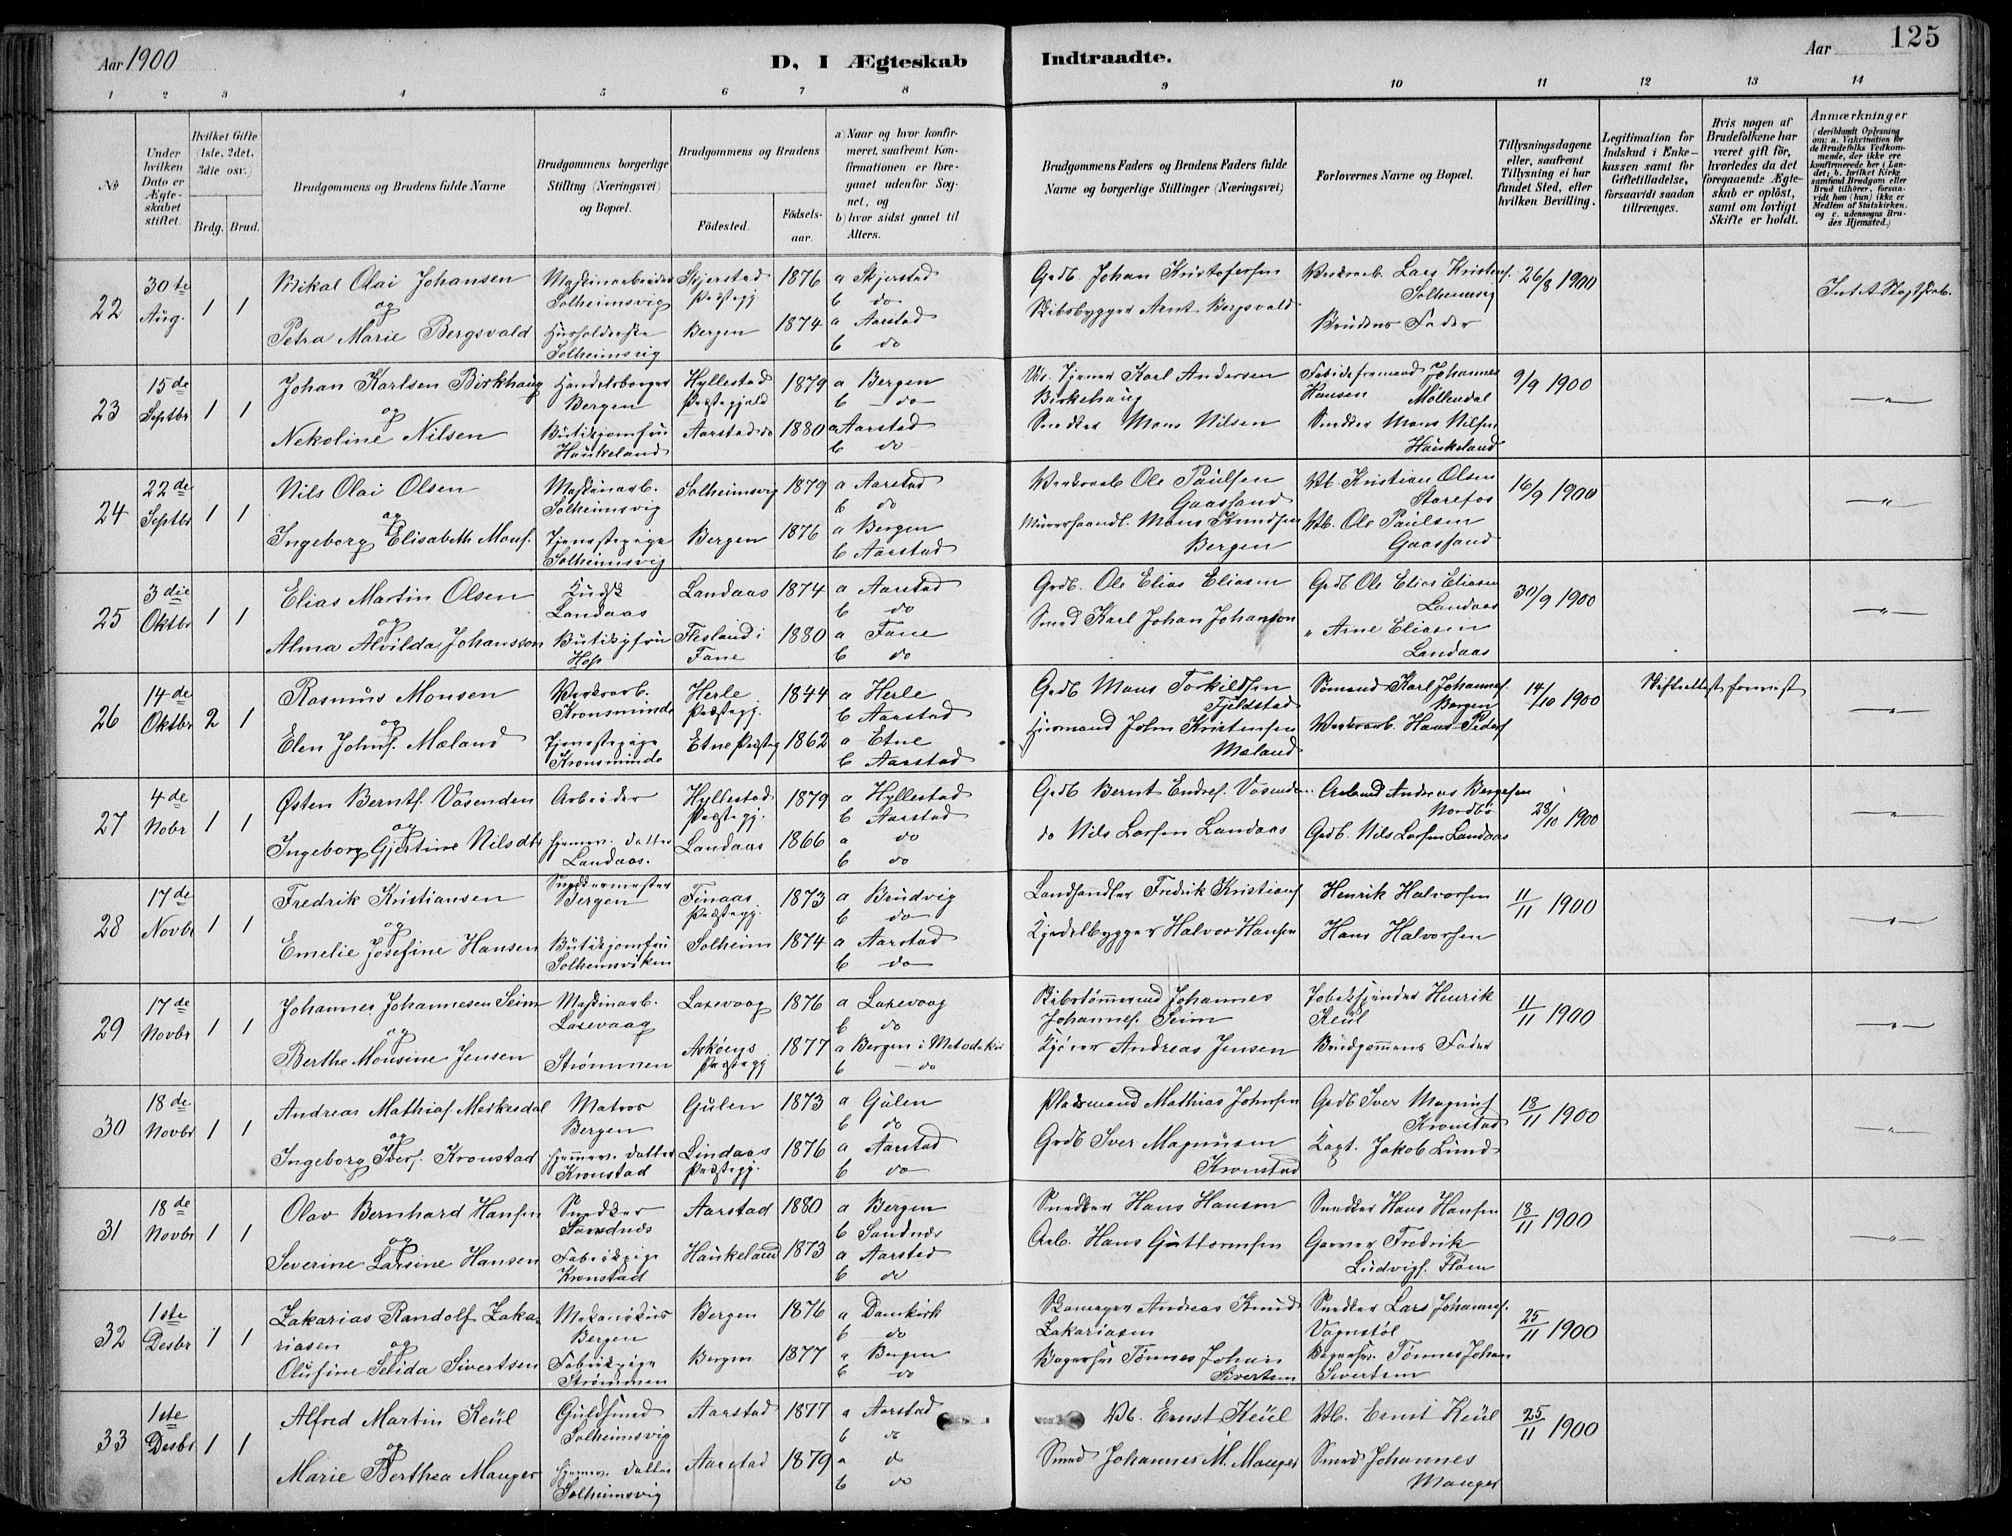 Aar 1900
D, I Ægteskab
Indtraadte.
Aar
125
1 2 3 4 5 6 7 8 9 10 11 12 13 14
No
Under hvilken Dato er Ægteskabet stiftet.
Hvilket Gifte (1ste, 2det, 3die osv.)
Brdg. Brud.
Brudgommens og Brudens fulde Navne
Brudgommens borgerlige Stilling (Næringsvei) og Bopæl.
Brudgommens og Brudens
Födested.
Födselsaar.
a) Naar og hvor konfirmeret, saafremt Konfirmationen er foregaaet udenfor Sognet, og
b) hvor sidst gaaet til Alters.
Brudgommens Faders og Brudens Faders fulde Navne og borgerlige Stillinger (Næringsvei)
Forlovernes Navne og Bopæl.
Tillysningsdagene eller, saafremt Tillysning ei har fundet Sted, efter hvilken Bevilling.
Legitimation for Indskud i Enkekassen samt for Giftetilladelse, forsaavidt saadan tiltrænges.
Hvis nogen af Brudefolkene har været gift för, hvorledes da det foregaaende Ægteskab er oplöst, samt om lovligt Skifte er holdt.
Anmærkninger
22 30te Aug. 1 1
Mikal Olai Johansen
og
Petra Marie Bergsvald
Maskinarbeider Solheimsvig
Husholderske Solheimsvig
Skjerstad Præstegj 1876
Bergen 1874
a Skjerstad
b do
a Aarstad
b do
Grdb. Johan Kristofersen
Skibsbygger Arnt Bergsvald
Værksarb. Lars Kristens. Solheimsvig
Brudens Fader
26/8 1900
23 15de Septbr 1 1
Johan Karlsen Birkhaug
og
Nekoline Nilsen
Handelsborger Bergen
Butikjomfru Haukeland
Hyllestad Præstegjeld 1879
Aarstad 1880
a Bergen
b do
a Aarstad
b do
Karl Andersen Birkehaug
Snedker Mons Nilsen
Johannes Hansen Møllendal
Snedker Mons Nilsen Haukeland
9/9 1900
24 22de Septbr 1 1
Nils Olai Olsen
og
Ingeborg Elisabeth Mons.
Maskinarb. Solheimsvig
Tjenestepige Solheimsvig
Solheimsvig 1879
Bergen 1876
a Aarstad
b do
a Bergen
b Aarstad
Værksarb Ole Paulsen Gaassand
Murerhaandl. Mons Knudsen Bergen
Vb. Kristian Olsen Starefos
Vb. Ole Paulsen Gaassand
16/9 1900
25 3die Oktbr 1 1
Elias Martin Olsen
og
Alma Alvilda Johansson
Kudsk Landaas
Butikjfru Hop
Landaas 1874
Flesland i Fane 1880
a Aarstad
b do
a Fane
b do
Grdb. Ole Elias Eliasen
Smed Karl Johan Johanson
Grdb Ole Elias Eliasen Landaas
" Arne Eliasen Landaas
30/9 1900
26 14de Oktbr 2 1
Rasmus Monsen
og
Elen Johns. Mæland
Værksarb. Kronsminde
Tjenestepige Kronsminde
Herle Præstegj. 1844
Etne Præsteg 1862
a Herle
b Aarstad
a Etne
b Aarstad
Grdb Mons Torkildsen Fjeldstad
Husmand John Kristensen Mæland
Sømand Karl Johannes. Bergen
Værksarb. Hans Peders
14/10 1900
Skifteattest forevist
27 4de Nobr 1 1
Østen Bernts. Vasenden
og
Ingeborg Gjertine Nilsdtr
Arbeider
hjemmev. datter Landaas.
Hyllestad Præstegj. 1879
Landaas 1866
a Hyllestad
b Aarstad
a do
b do
Grdb Bernt Endres. Vasenden
do Nils Larsen Landaas
Andreas Bergesen Nordbø
Grdb. Nils Larsen Landaas
28/10 1900
28 17de Novbr 1 1
Fredrik Kristiansen
og
Emelie Josefine Hansen
Snedkermester Bergen
Butikjomfru Solheimsviken
Finaas Præstegj. 1873
Solheim 1874
a Brudvig
b do
a Aarstad
b do
Landhandler Fredrik Kristians
Kjedelbygger Halvor Hansen
Henrik Halvorsen
Hans Halvorsen
11/11 1900
29 17de Novbr 1 1
Johannes Johannesen Seim
og
Berthe Monsine Jensen
Maskinarb. Laxevaag
Strømmen
Laxevaag 1876
Askøens Præstegj 1877
a Laxevaag
b do
a Bergen i Metodistki
b do
Skibstømmermd Johannes Johannes. Seim
Kjører Andreas Jensen
Henrik Keül
Brudgommens Fader
11/11 1900
30 18de Novbr 1 1
Andreas Mathias. Merkesdal
og
Ingeborg Ivers. Kronstad
Matros Bergen
hjemmev. datter Kronstad
Gulen 1873
Lindaas Præstegj. 1876
a Gulen
b do
a Aarstad
b do
Pladsmand Mathias Johnsen
Grdb Iver Magnusen Kronstad
Grdb Iver Magnus Kronstad
Kapt. Jakob Lund
18/11 1900
31 18de Novbr 1 1
Olav Bernhard Hansen
og
Severine Larsine Hansen
Snedker Sandnes
Fabrikpige Kronstad
Aarstad 1880
Haukeland 1873
a Bergen
b Sandnes
a Aarstad
b do
Snedker Hans Hansen
Arb. Hans Guttormsen
Snedker Hans Hansen
Garver Fredrik Ludvigs. Fløen
18/11 1900
32 1ste Desbr 1 1
Zakarias Randolf Zakariasen
og
Olufine Selida Sivertsen
Mekanikus Bergen
Fabrikpige Strømmen
Bergen 1876
Bergen 1877
a Domkirk
b do
a Bergen
b do
Skomager Andreas Knud Zakariasen
Bagersv. Tønnes Johan Sivertsen
Snedker Lars Johannes. Vognstøl
Bagersv. Tønnes Johan Sivertsen
25/11 1900
33 1ste Desbr 1 1
Alfred Martin Keül
og
Marie Berthea Manger
Guldsmed Solheimsvig
hjemmev. datter Solheimsvig
Aarstad 1877
Aarstad 1879
a Aarstad
b do
a do
b do
Vb. Ernst Keül
Smed Johannes M. Manger
Vb. Ernst Keül
Smed Johannes Manger
25/11 1900